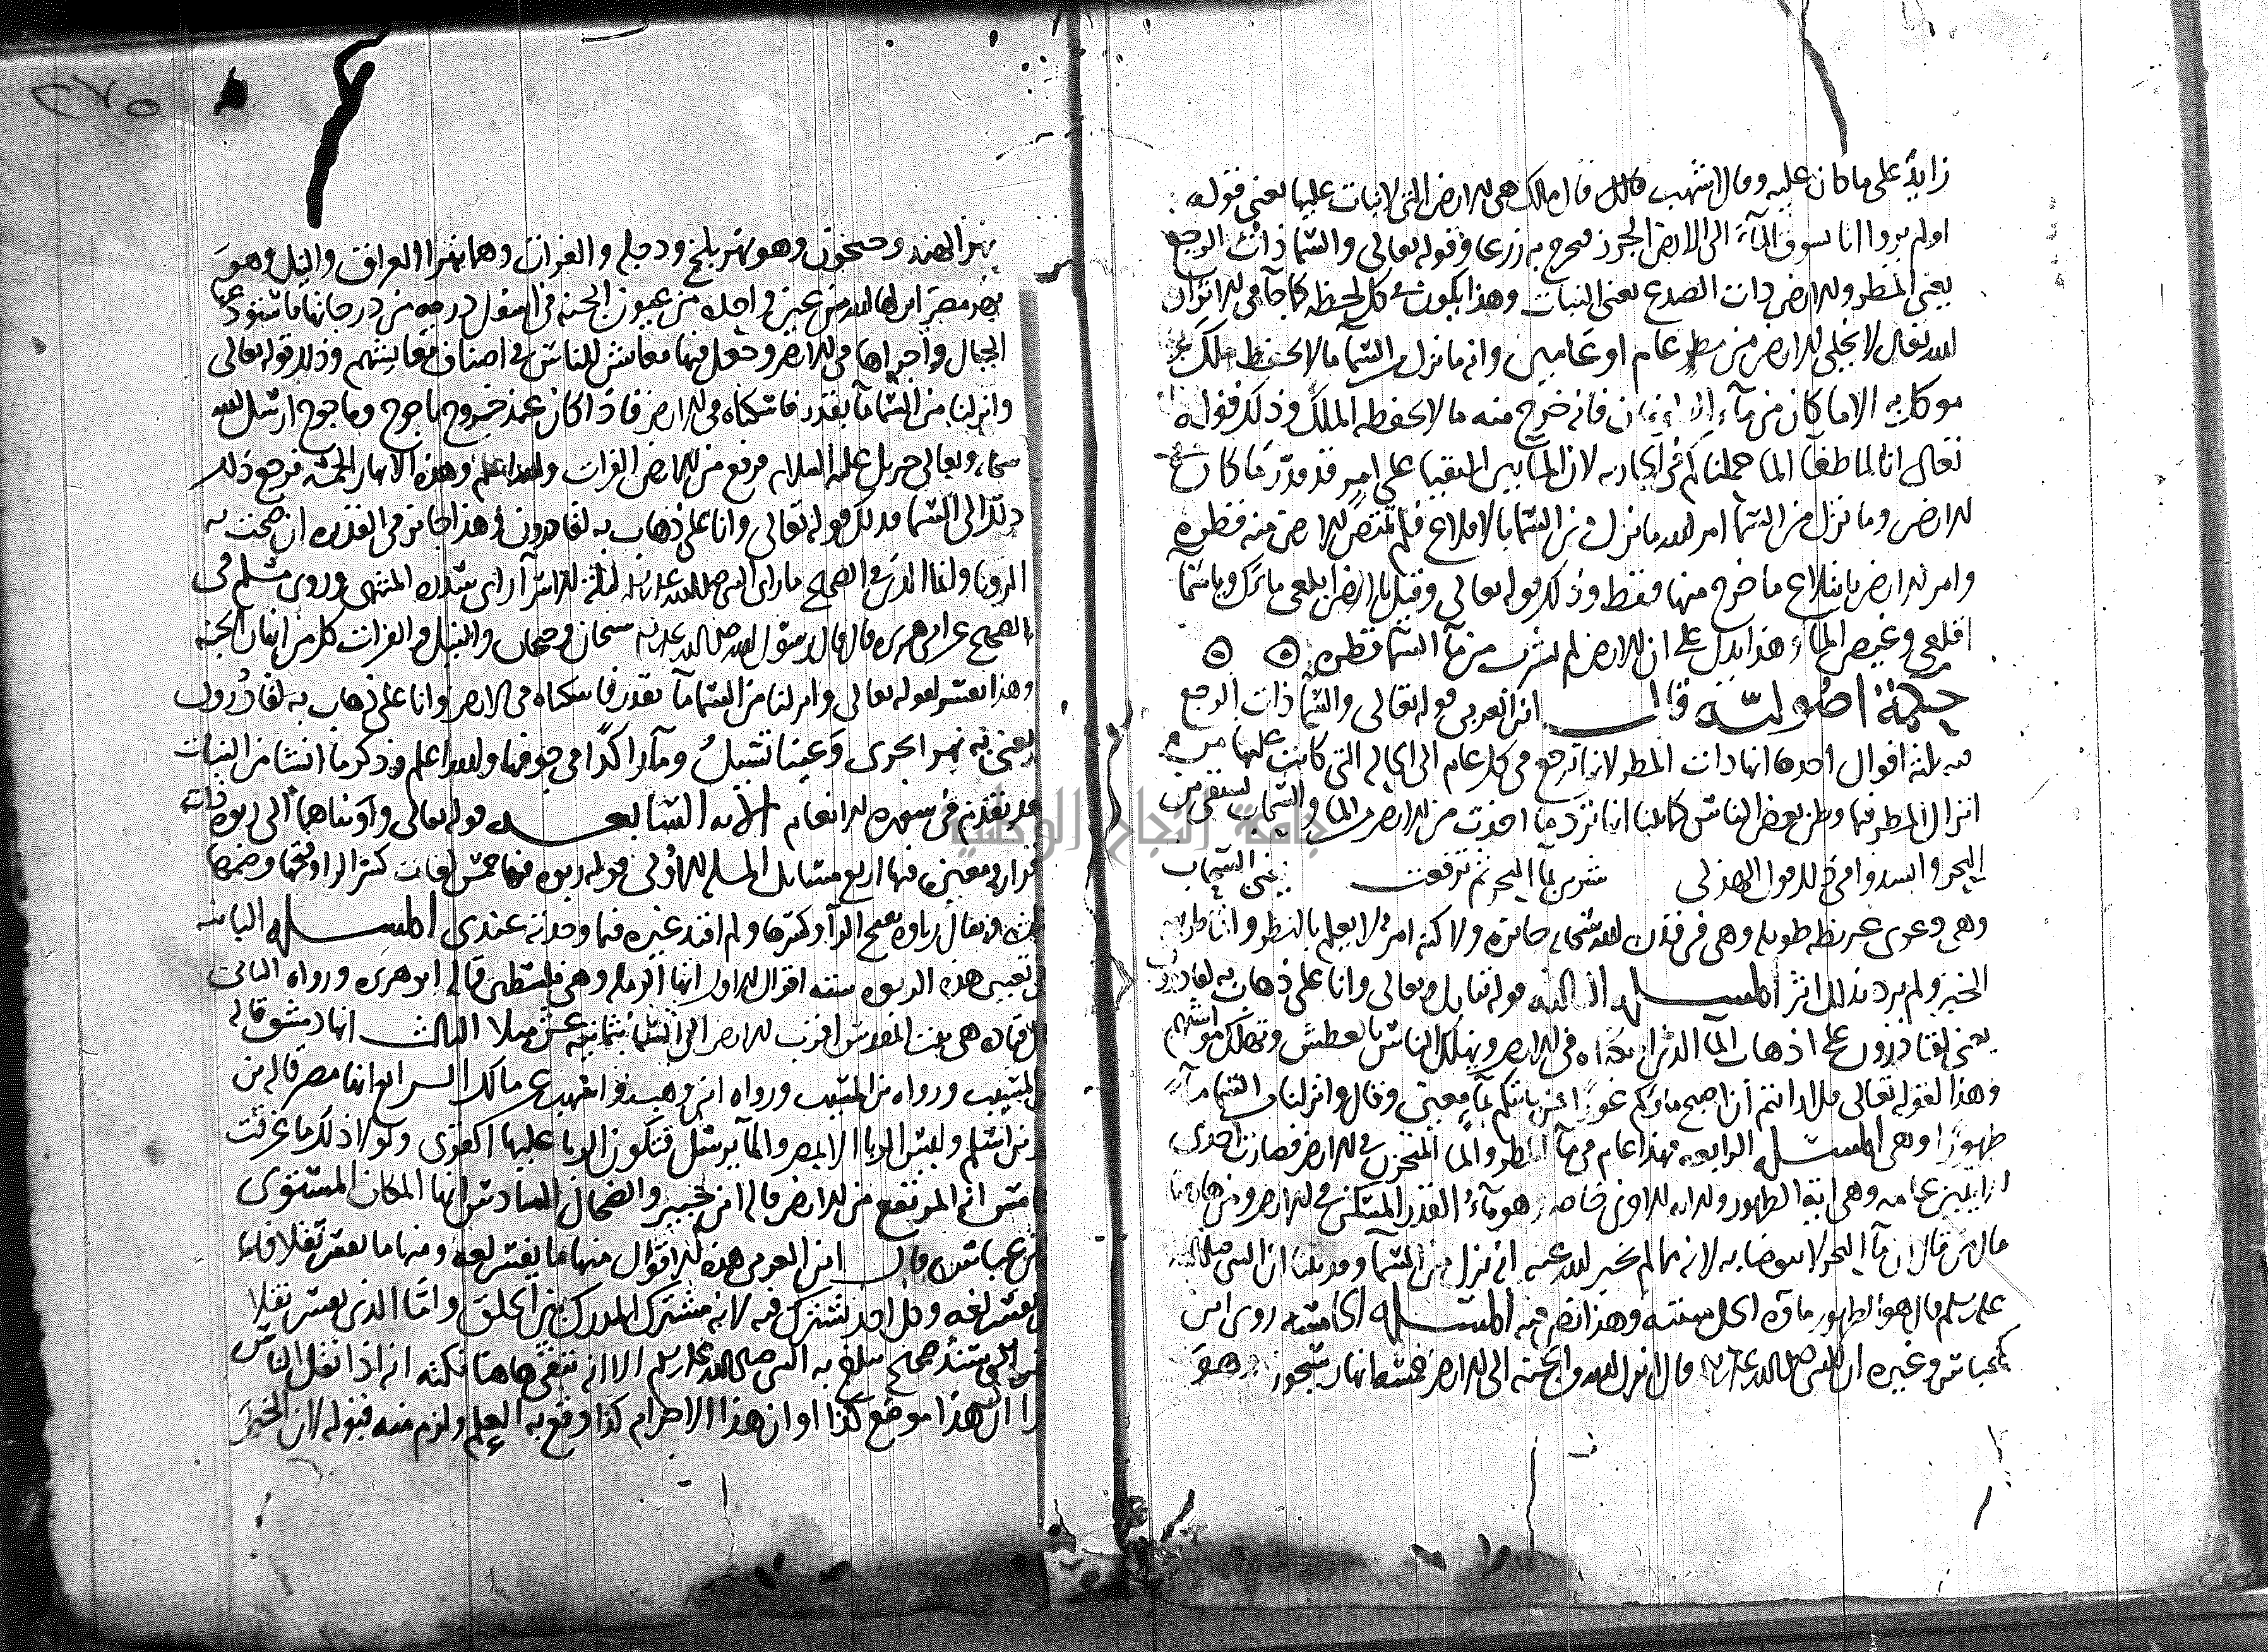 زايدة على ما كان عليه وقال اشهب قال مالك هى الارض التى لا نبات عليها يعنى قوله
اولم يروا انا نسوق المآء الى الارض الجرز فنخرج به زرعا وقوله تعالى والسما ذات الرجع
يعنى المطر والارض ذات الصدع يعنى النبات وهذا يكون فى كل لحظة كما جآ فى
الله تعالى لا يخلى الارض من مطر عام او عامين وانه ما نزل من السمآ مآ الا بحفظ ملك
موكل به الا ما كان من مآء الطوفان فانه خرج منه ما لا يحفظه الملك وذلك قوله
تعالى انا لما طغا الما حملناكم فى الجاريه لان المايين التقيا على امر قد قدر ما كان فى
الارض وما نزل من السما امر الله ما نزل من السما بالاقلاع فلم تمتص الارض منه قطرة
وامر الارض بابتلاع ما خرج منها فقط وذلك قوله تعالى وقيل يارض ابلعى ماءك وياسمآ
اقلعى وغيض الماء وهذا يدل على ان الارض لم تشرب من مآ السما قطره
جملة اصولية قال ابن العربى قوله تعالى والسما ذات الرجع
فيه ثلثة اقوال احدها انها ذات المطر لانها ترجع فى كل عام الى الحاله التى كانت عليها من
انزال المطر فيها وظن بعض الناس كما بينا انها ترد ما اخذت من الارض من الما والسحاب تستقى من
البحر وانشدوا فى ذلك قول الهذلى شربن بمآ البحر ثم ترفعت يعنى السحاب
وهى دعوى عريضه طويله وهى فى قدرة الله سبحانه جائزه ولاكنه امر لا يعلم بالنظر وانما طريقه
الخبر ولم يرد بذلك اثر المسله الثالثه قوله تعالى وانا على ذهاب به لقادرون
يعنى لقادرون على اذهاب الما الذى اسكناه فى الارض ويهلك الناس بالعطش وتهلك مواشيهم
وهذا كقوله تعالى قل ارايتم ان اصبح ماؤكم غورا فمن ياتيكم بمآ معين وقال وانزلنا من السما مآ
طهورا وهى المسله الرابعه فهذا عام فى مآ المطر والما المختزن فى الارض فصارت احدى
الايتين عامه وهى اية الطهور والايه الاخرى خاصه وهو مآء القدر المسكن فى الارض ومن هاهنا
قال من قال ان مآ البحر لا يتوضا به لانه مما لم يخبر الله عنه انه نزل من السمآ وقد بينا ان النبى صلى الله
عليه وسلم قال هو الطهور ماؤه الحل ميتته وهذا نص فيه المسله الخامسه روى ابن
عباس وغيره ان النبى صلى الله عليه وسلم قال انزل الله من الجنه الى الارض خمسه انهار سيحون وهو
نهر الهند وجيحون وهو نهر بلخ ودجله والفرات وهما نهرا العراق والنيل وهو
نهر مصر انزلها الله من عين واحده من عيون الجنه فى اسفل درجه من درجاتها فاستودعها
الجبال واجراها فى الارض وجعل فيها معاش للناس فى اصناف معايشهم وذلك قوله تعالى
وانزلنا من السما مآ بقدر فاسكناه فى الارض فاذا كان عند خروج ياجوج وماجوج ارسل الله
سبحانه وتعالى جبريل عليه السلام فرفع من الارض الفرات وهذه الانهار الخمسه فرجع ذلك
الى السما فذلك قوله تعالى وانا على ذهاب به لقادرون وهذا جائز فى القدره ان صحت به
الروايه وانما الذى فى الصحيح ما راى النبى صلى الله عليه وسلم ليلة الاسرآ راى سدرة المنتهى وروى مسلم فى
الصحيح عن ابى هريره قال قال رسول الله صلى الله عليه وسلم سيحان وجيحان والنيل والفرات كل من انهار الجنه
وهذا تفسير لقوله تعالى وانزلنا من السما مآ بقدر فاسكناه فى الارض وانا على ذهاب به لقادرون
يعنى به نهرا يجرى وعينا تسيل ومآ راكدا فى جوفها والله اعلم وذكر ما انشا من النبات
قد تقدم فى سورة الانعام الايه السابعه قوله تعالى واويناهما الى ربوة ذات
قرار ومعين فيها اربع مسايل المسله الاولى قوله ربوه فيها خمس لغات كسر الرا وفتحها وضمها
ثلث ويقال رباوه بفتح الرآ وكسرها ولم اقيد غيره فيما وجدته عندى المسله الثانيه
فى تعيين هذه الربوه سته اقوال الاول انها الرمله وهى فلسطين قاله ابو هريره ورواه الثانى
قال قتاده هى بيت المقدس اقرب الارض الى السما بثمانية عشر ميلا الثالث انها دمشق قاله
ابن المسيب ورواه ابن وهب واشهب عن مالك الرابع انها مصر قاله ابن
زيد بن اسلم وليس الربا الا بمصر والمآ يرسل فتكون الربا عليها القرى ولولا ذلك ما غرقت
الخامس انه المرتفع من الارض قاله ابن جبير والضحاك السادس انها المكان المستوى
ابن عباس قال ابن العربى هذه الاقوال منها ما يفسر لغه ومنها ما يفسر نقلا فاما
ما يفسر لغه فكل احد يشترك فيه لانه مشترك المدرك بين الخلق واما الذى يفسر نقلا
فمفتقر الى سند صحيح يبلغ به النبى صلى الله عليه وسلم الا انه تبقى هاهنا نكته انه اذا نقل الناس
ان هذا موضع كذا او ان هذا الامر كذا وقع به العلم ولزم منه قبوله لان الخبر